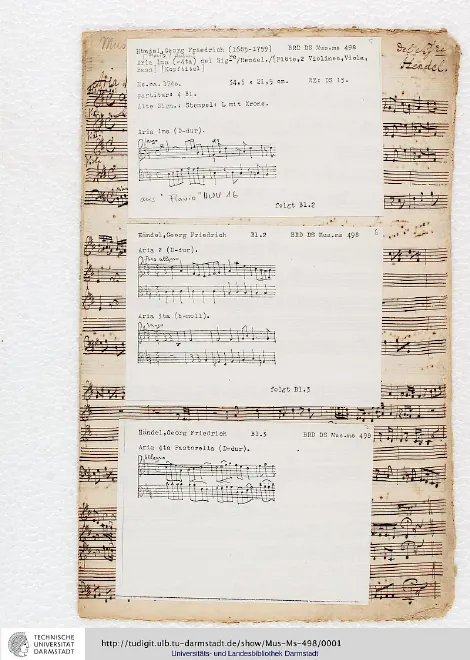 Mus
del Sigre
Hendel.
Händel,Georg Friedrich (1685-1759) BRD DS Mus.ms 498
Aria 1ma (-4ta) del Sigre/Hendel./[Flöte,2 Violinen,Viola,
Bass] [Kopftitel]
Hs.ca.1740. 34,5 x 21,5 cm. WZ: DS 15.
Partitur: 4 Bl.
Alte Sign.: Stempel: L mit Krone.
Aria 1mo (D-dur).
Largo
aus "Flavio" HWV 16
folgt Bl.2
Händel,Georg Friedrich Bl.2 BRD DS Mus.ms 498
Aria 2 (D-dur).
allegro
Aria 3ta (h-moll).
Largo
folgt Bl.3
Händel,Georg Friedrich Bl.3 BRD DS Mus.ms 498
Aria 4ta Pastorella (D-dur).
Allegro
TECHNISCHE
UNIVERSITÄT
DARMSTADT
http://tudigit.ulb.tu-darmstadt.de/show/Mus-Ms-498/0001
Universitäts- und Landesbibliothek Darmstadt